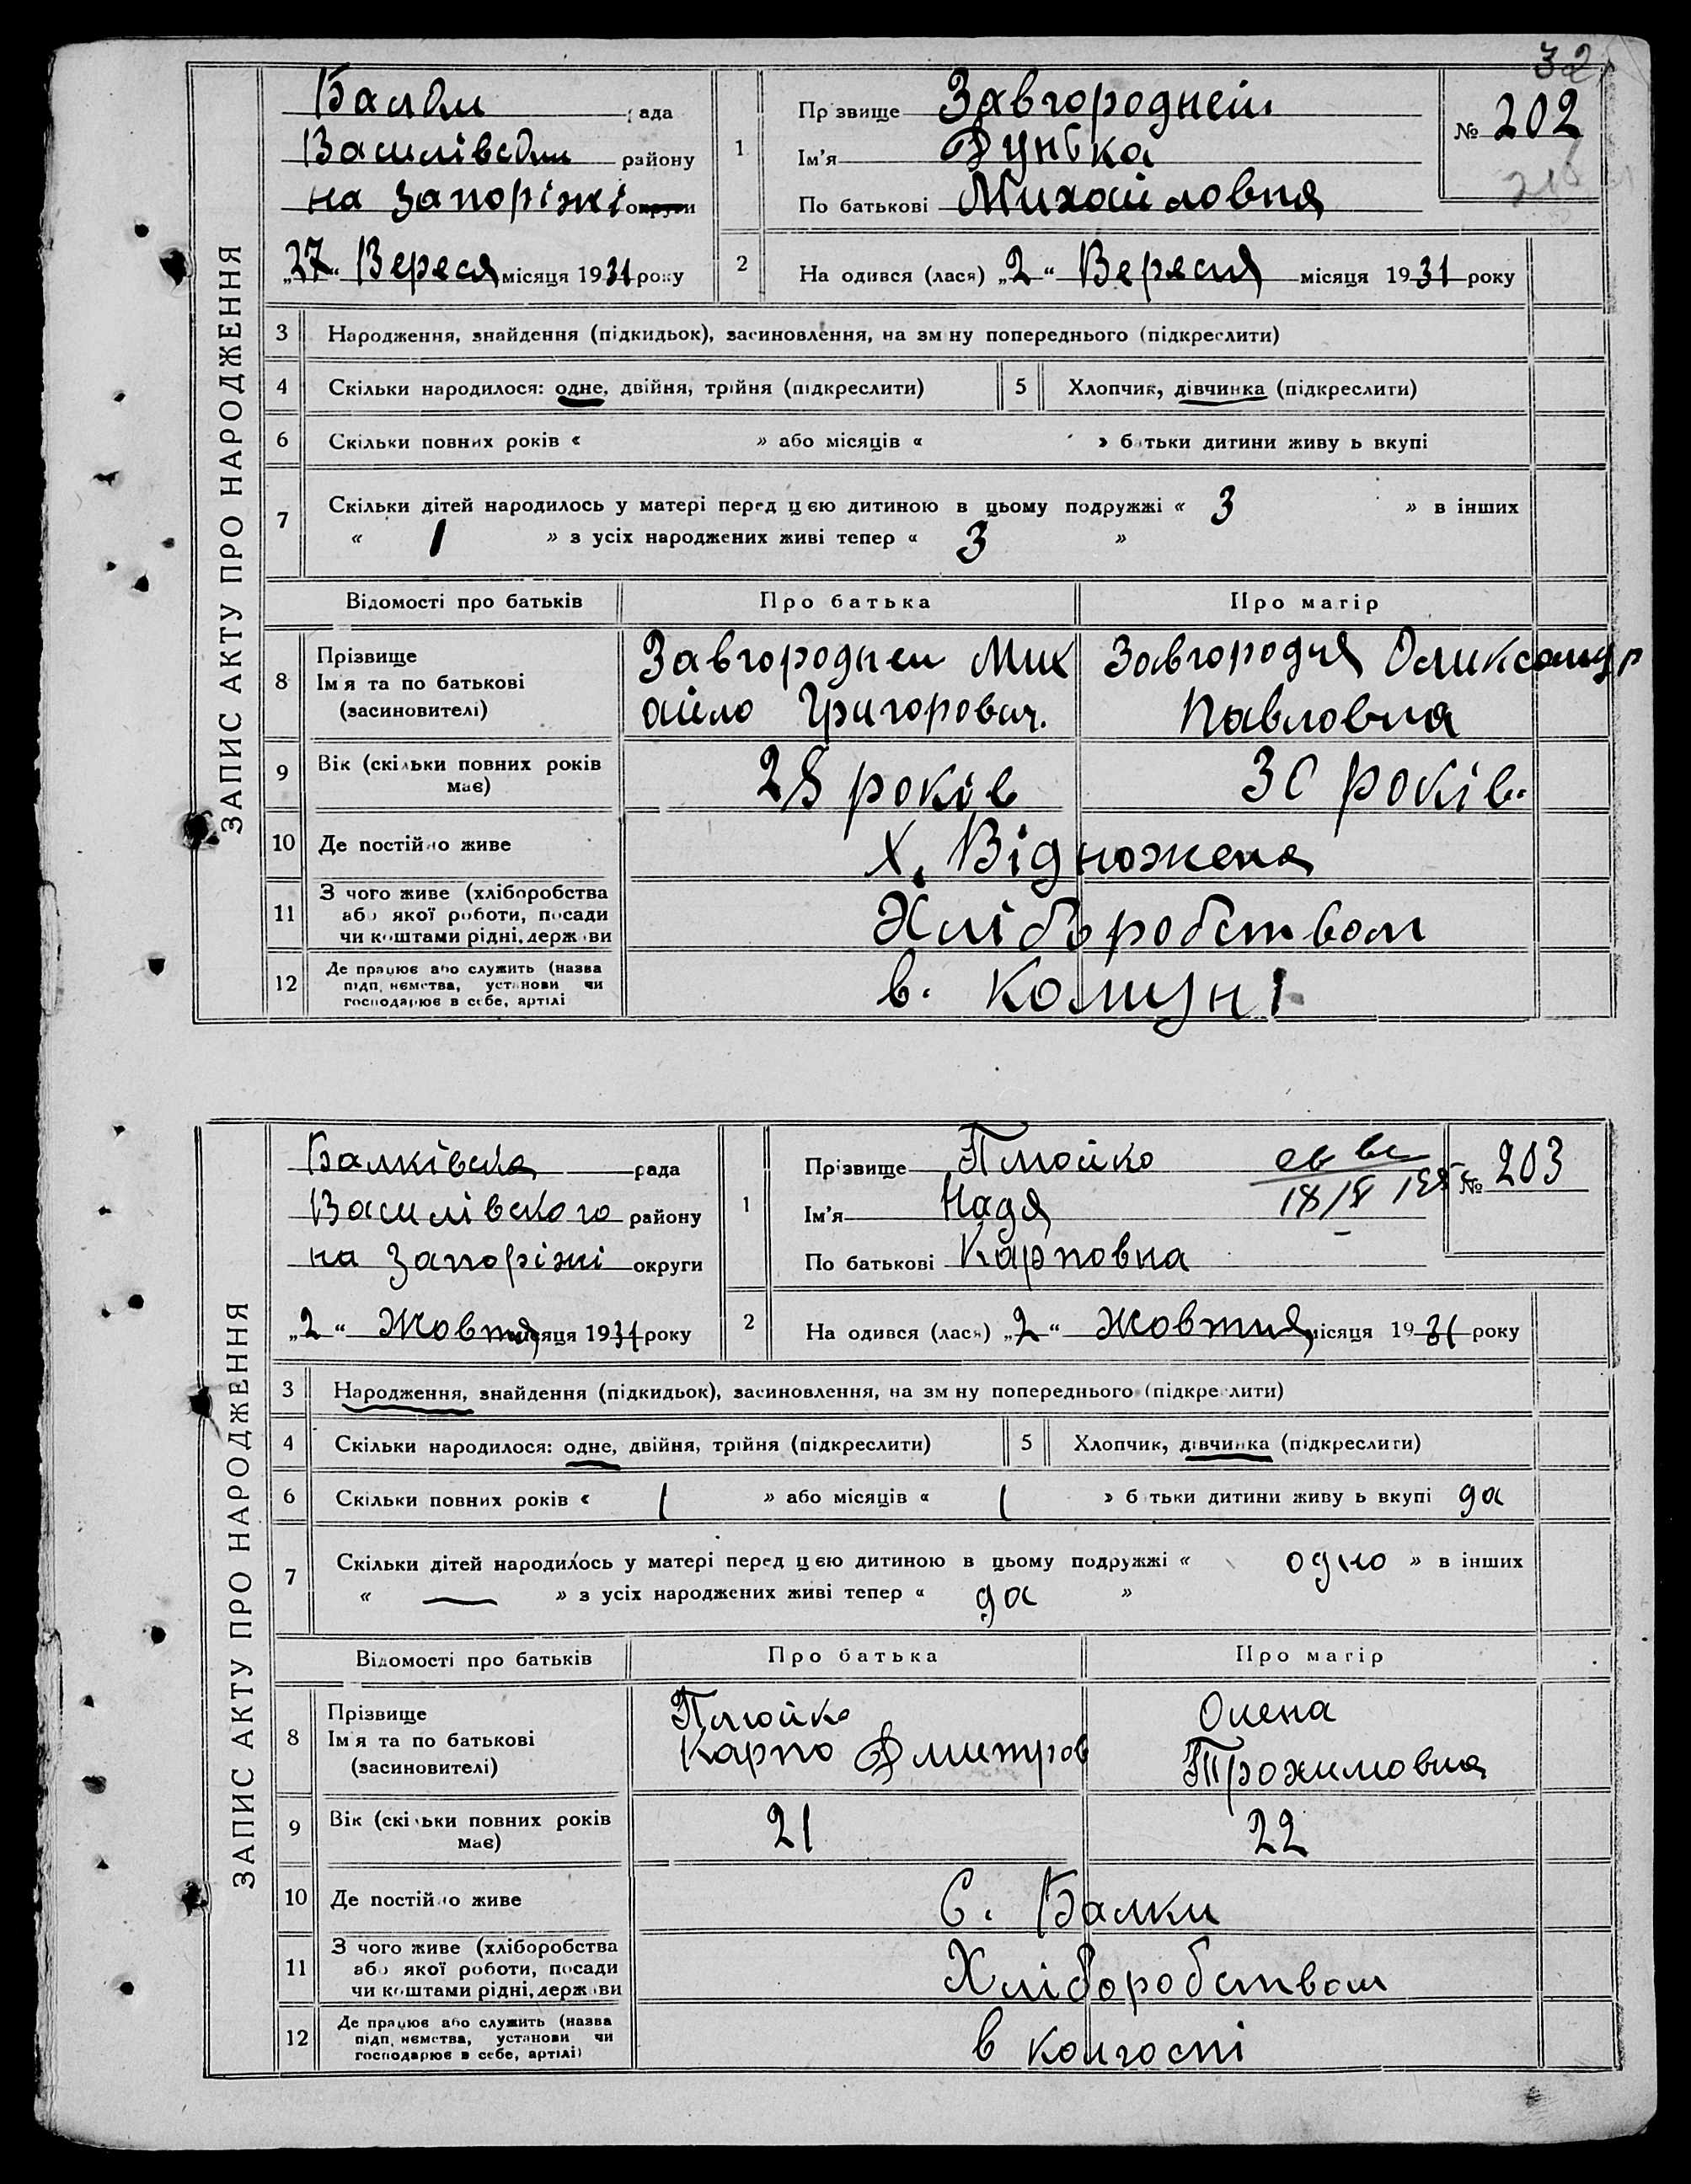 32
ЗАПИС АКТУ ПРО НАРОДЖЕННЯ
рада
району
на Запоріжі округи
„27“ Вереся місяця 1931 року
1
Прізвище Завгородней
Ім'я Дунька
По батькові Михайловня
№ 202
2
На одився (лася) „2“ Вересня місяця 1931 року
3 Народження, знайдення (підкидьок), засиновлення, на зм ну попереднього (підкреслити)
4 Скільки народилося: одне, двійня, трійня (підкреслити)
5 Хлопчик, дівчинка (підкреслити)
6 Скільки повних років « » або місяців « » б тьки дитини живу ь вкупі
7 Скільки дітей народилось у матері перед цєю дитиною в цьому подружжі « 3 » в інших
« 1 » з усіх народжених живі тепер « 3 »
Відомості про батьків
Про батька
Про матір
8 Прізвище
Ім я та по батькові
(засиновителі)
Завгородней Мих
айло Григорович.
Завгородня Оликсандр
Павловна
9 Вік (скільки повних років
має)
28 років
30 років
10 Де постійно живе
Х. Відножена
11 З чого живе (хліборобства
або якої роботи, посади
чи коштами рідні, держ ви
Хліборобством
12 Де працює або служить (назва
підп, ємства, установи чи
господарює в себе, артілі
в. Комуні
ЗАПИС АКТУ ПРО НАРОДЖЕННЯ
Балківська рада
Василівського району
на Запоріжі округи
„2“ Жовтня місяця 1931 року
1
Прізвище Плюйко
Ім'я Надя
По батькові Карповна
№ 203
2
На одився (лася) „2“ Жовтня місяця 1931 року
3 Народження, знайдення (підкидьок), засиновлення, на зм ну попереднього (підкре лити)
4 Скільки народилося: одне, двійня, трійня (підкреслити)
5 Хлопчик, дівчинка (підкреслити)
6 Скільки повних років « 1 » або місяців « 1 » б тьки дитини живу ь вкупі да
7 Скільки дітей народилось у матері перед цєю дитиною в цьому подружжі « одно » в інших
« — » з усіх народжених живі тепер « да »
Відомості про батьків
Про батька
Про матір
8 Прізвище
Ім я та по батькові
(засиновителі)
Плюйко
Карпо Дмитров
Олена
Трохимовна
9 Вік (скільки повних років
має)
21
22
10 Де постійно живе
С. Балки
11 З чого живе (хліборобства
або якої роботи, посади
чи коштами рідні, держ ви
Хліборобством
12 Де працює або служить (назва
підп, ємства, установи чи
господарює в себе, артілі)
в колгоспі